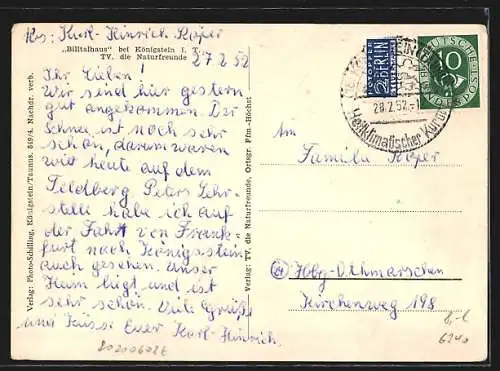 Abs: Karl-Heinrich Röper
„Billtalhaus" bei Königstein i. T.
TV. die Naturfreunde
27.2.52
Ihr Lieben!
Wir sind hier gestern
gut angekommen. Der
Schnee ist noch sehr
schön, darum waren
wir heute auf dem
Feldberg Peters Lehr-
stelle habe ich auf
der Fahrt von Frank-
furt nach Königsstein
auch gesehen. Unser
Heim liegt und ist
sehr schön. Viele Grüße
und Küsse Euer Karl-Heinrich.
Verlag: Photo-Schilling, Königstein/Taunus. 849/4. Nachdr. verb.
Verlag: TV. die Naturfreunde, Ortsgr. Ffm.-Höchst
NOTOPFER
2 BERLIN
STEUERMARKE
DEUTSCHE BUNDESPOST
10
28.2.52
Heilklimatischer Kurort
An
Familie Röper
Hbg-Othmarschen
Kirchenweg 198
8,-
6240
802006026